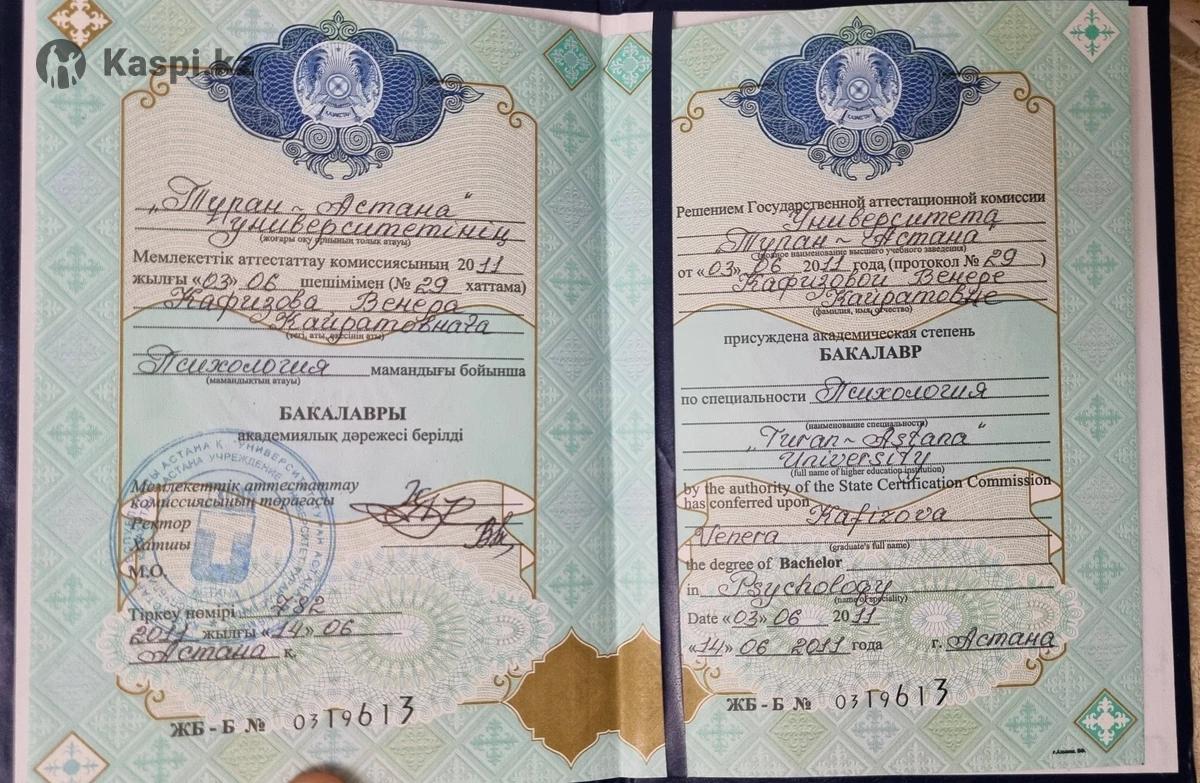 Kaspi.kz
ҚАЗАҚСТАН
„Туран-Астана"
университетінің
(жоғары оқу орнының толық атауы)
Мемлекеттік аттестаттау комиссиясының 2011
жылғы «03» 06 шешімімен (№ 29 хаттама)
Кафизова Венера
Кайратовнаға
(тегі, аты, әкесінің аты)
Психология мамандығы бойынша
(мамандықтың атауы)
БАКАЛАВРЫ
академиялық дәрежесі берілді
Мемлекеттік аттестаттау
комиссиясының төрағасы
Ректор
Хатшы
М.О.
Тіркеу нөмірі 782
2011 жылғы «14» 06
Астана қ.
ЖБ - Б № 0319613
ҚАЗАҚСТАН
Решением Государственной аттестационной комиссии
Университета
Туран-Астана
(полное наименование высшего учебного заведения)
от «03» 06 2011 года (протокол № 29 )
Кафизовой Венере
Кайратовне
(фамилия, имя, отчество)
присуждена академическая степень
БАКАЛАВР
по специальности Психология
(наименование специальности)
„Turan-Astana"
University
(full name of higher education institution)
by the authority of the State Certification Commission
has conferred upon Kafizova
Venera
(graduate's full name)
the degree of Bachelor
in Psychology
(name of speciality)
Date «03» 06 2011
«14» 06 2011 года г. Астана
ЖБ - Б № 0319613